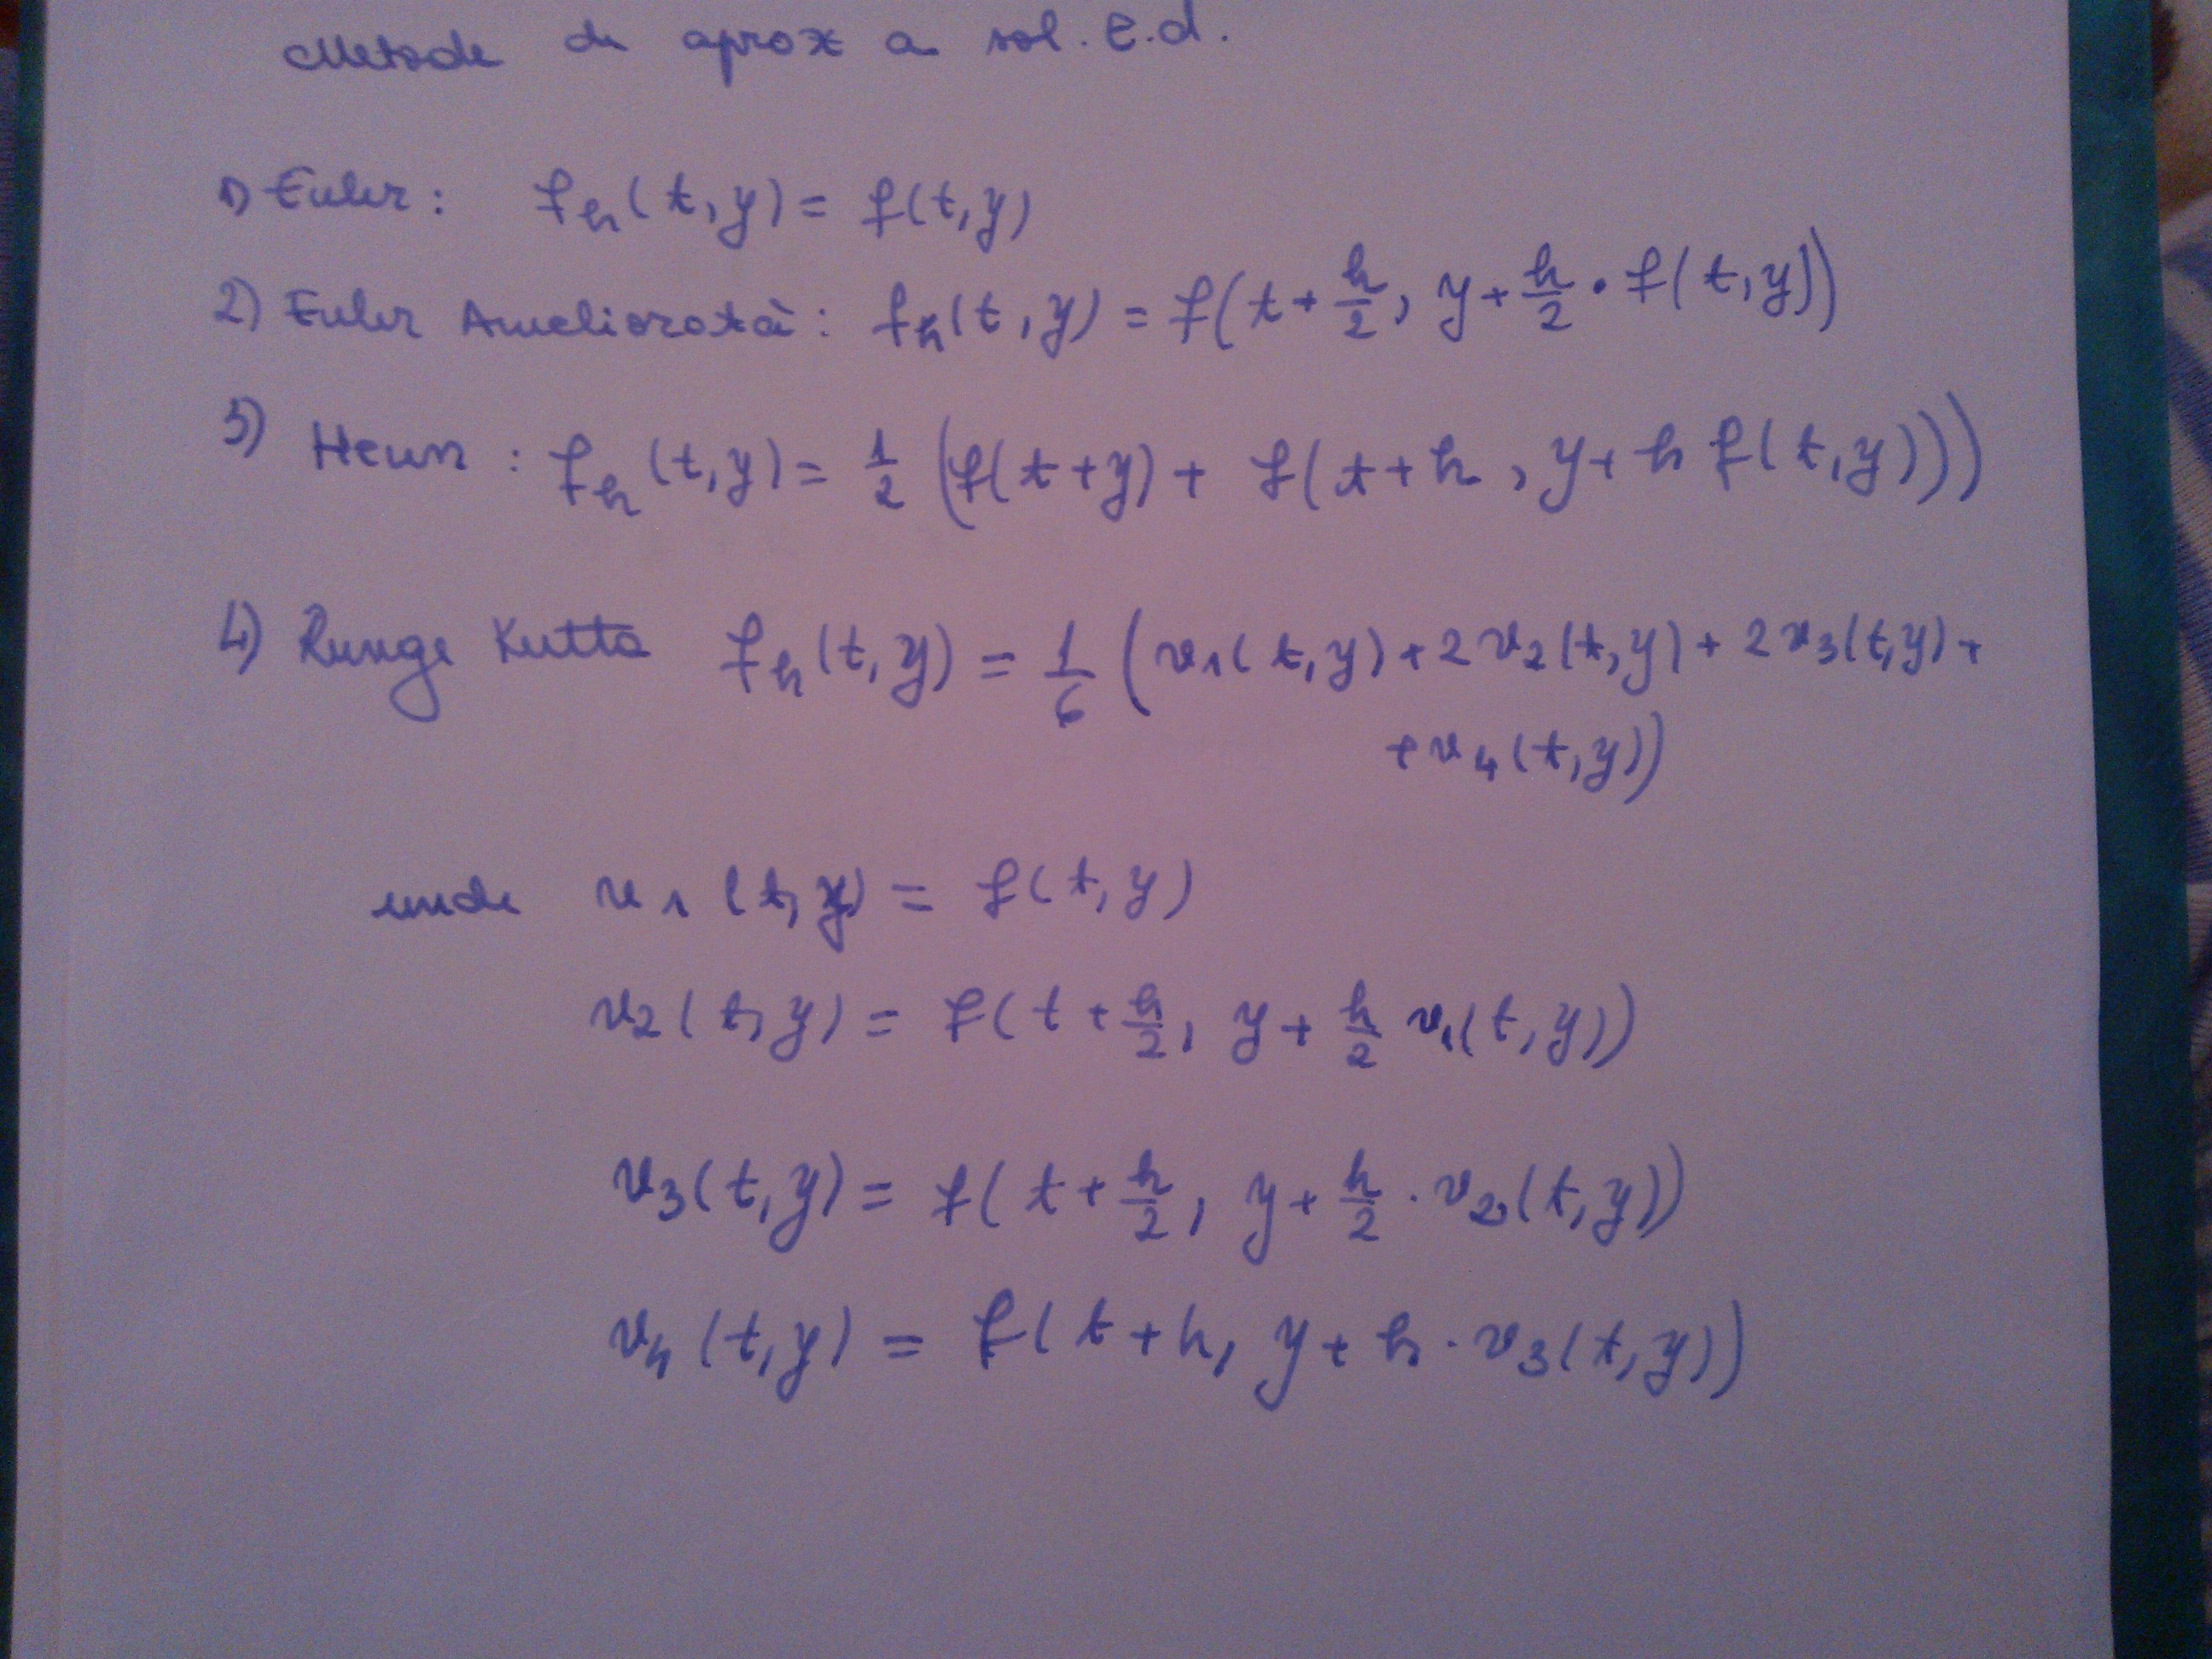 Metode de aprox a sol. E.d.
1) Euler: f_h(t,y) = f(t,y)
2) Euler Ameliorată: f_h(t,y) = f(t + h/2, y + h/2 · f(t,y))
3) Heun: f_h(t,y) = 1/2 (f(t+y) + f(t+h, y+h f(t,y)))
4) Runge Kutta f_h(t,y) = 1/6 (v_1(t,y) + 2v_2(t,y) + 2v_3(t,y) +
+ v_4(t,y))
unde v_1(t,y) = f(t,y)
v_2(t,y) = f(t + h/2, y + h/2 v_1(t,y))
v_3(t,y) = f(t + h/2, y + h/2 · v_2(t,y))
v_4(t,y) = f(t+h, y+h · v_3(t,y))